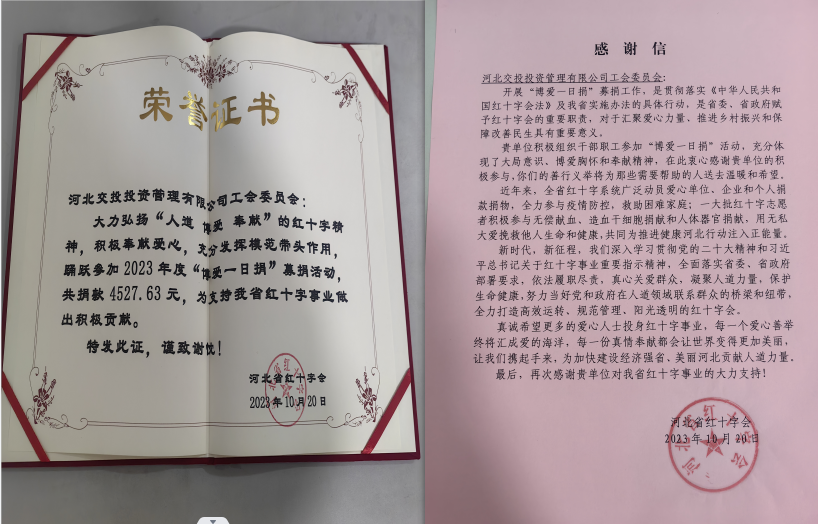 荣誉证书
河北交投投资管理有限公司工会委员会:
大力弘扬“人道 博爱 奉献”的红十字精
神，积极奉献爱心，充分发挥模范带头作用，
踊跃参加2023年度“博爱一日捐”募捐活动，
共捐款4527.63元，为支持我省红十字事业做
出积极贡献。
特发此证，谨致谢忱！
河北省红十字会
2023年10月20日
感谢信
河北交投投资管理有限公司工会委员会:
开展“博爱一日捐”募捐工作，是贯彻落实《中华人民共和
国红十字会法》及我省实施办法的具体行动，是省委、省政府赋
予红十字会的重要职责，对于汇聚爱心力量、推进乡村振兴和保
障改善民生具有重要意义。
贵单位积极组织干部职工参加“博爱一日捐”活动，充分体
现了大局意识、博爱胸怀和奉献精神，在此衷心感谢贵单位的积
极参与，你们的善行义举将为那些需要帮助的人送去温暖和希望。
近年来，全省红十字系统广泛动员爱心单位、企业和个人捐
款捐物，全力参与疫情防控，救助困难家庭；一大批红十字志愿
者积极参与无偿献血、造血干细胞捐献和人体器官捐献，用无私
大爱挽救他人生命和健康，共同为推进健康河北行动注入正能量。
新时代，新征程，我们深入学习贯彻党的二十大精神和习近
平总书记关于红十字事业重要指示精神，全面落实省委、省政府
部署要求，依法履职尽责，真心关爱群众，凝聚人道力量，保护
生命健康，努力当好党和政府在人道领域联系群众的桥梁和纽带，
全力打造高效运转、规范管理、阳光透明的红十字会。
真诚希望更多的爱心人士投身红十字事业，每一个爱心善举
终将汇成爱的海洋，每一份真情奉献都会让世界变得更加美丽，
让我们携起手来，为加快建设经济强省、美丽河北贡献人道力量。
最后，再次感谢贵单位对我省红十字事业的大力支持！
河北省红十字会
2023年10月20日